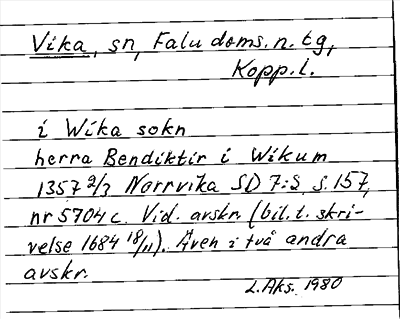 Vika, sn, Falu doms. n. tg,
Kopp. l.
i Wika sokn
herra Bendiktir i Wikum
1357 2/7 Norrvika SD 7:2, s. 157,
nr 5704 c. Vid. avskr. (bil. t. skri-
velse 1684 18/11). Även i två andra
avskr.
L. Aks. 1980